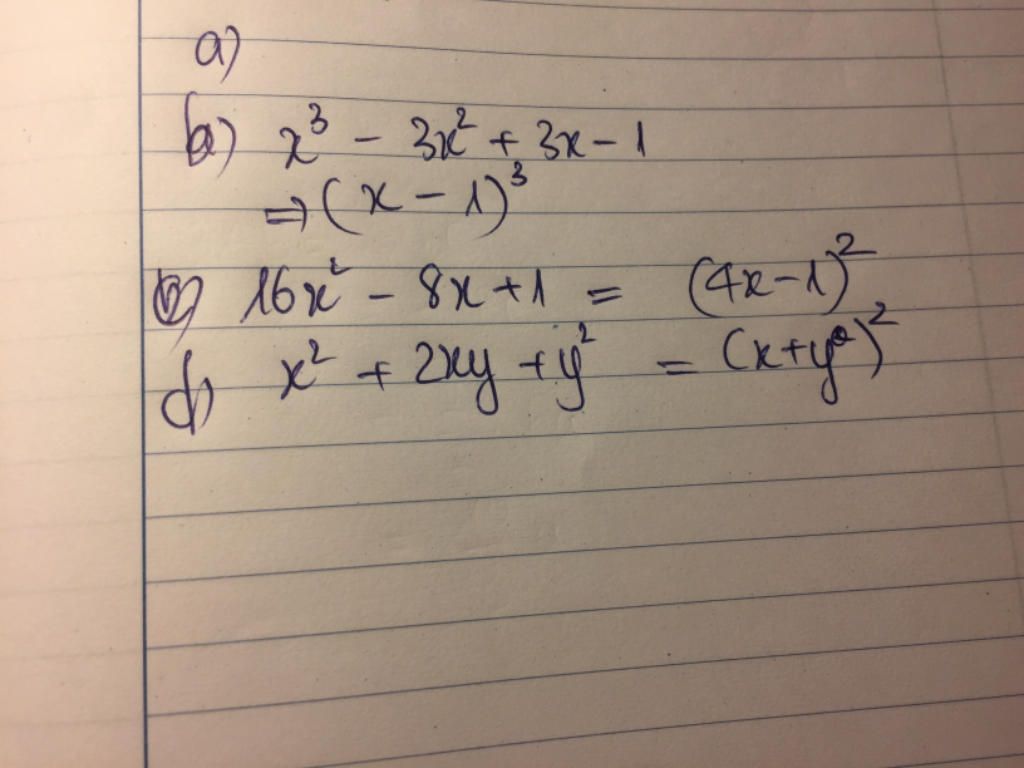 a)
b) x³ - 3x² + 3x - 1
⇒ (x - 1)³
c) 16x² - 8x + 1 = (4x - 1)²
d) x² + 2xy + y² = (x + y)²